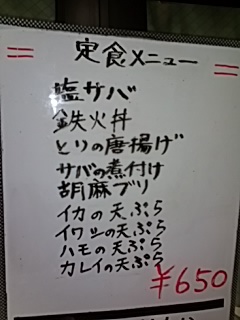 定食メニュー
塩サバ
鉄火丼
とりの唐揚げ
サバの煮付け
胡麻ブリ
イカの天ぷら
イワシの天ぷら
ハモの天ぷら
カレイの天ぷら
¥650